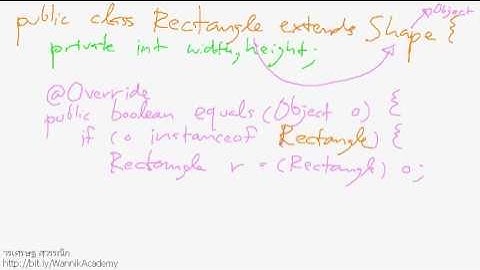 public class Rectangle extends Shape {
Object
private int width, height;
@Override
public boolean equals(Object o) {
if (o instanceof Rectangle) {
Rectangle r = (Rectangle) o;
วรเศรษฐ สุวรรณิก
http://bit.ly/WannikAcademy